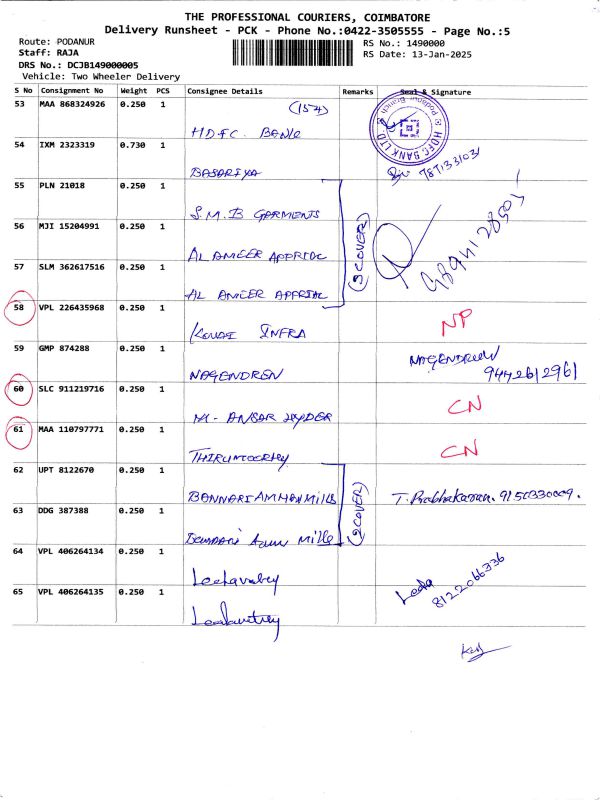 THE PROFESSIONAL COURIERS, COIMBATORE
Delivery Runsheet - PCK - Phone No.:0422-3505555 - Page No.:5
Route: PODANUR
RS No.: 1490000
Staff: RAJA
RS Date: 13-Jan-2025
DRS No.: DCJB149000005
Vehicle: Two Wheeler Delivery
S No Consignment No Weight PCS Consignee Details Remarks Seal & Signature
53 MAA 868324926 0.250 1 HDFC. BANK
HDFC BANK LTD. Podanur Branch
54 IXM 2323319 0.730 1 BASARIYA
7871331031
55 PLN 21018 0.250 1 S.M.B GARMENTS
56 MJI 15204991 0.250 1 AL AMEER APPRIAL
(3 COVER)
57 SLM 362617516 0.250 1 AL AMEER APPRIAL
58 VPL 226435968 0.250 1 INFRA NP
59 GMP 874288 0.250 1 NAGENDREN
NAGENDREN
9442612961
60 SLC 911219716 0.250 1 M. ANSAR HYDER CN
61 MAA 110797771 0.250 1 THIRUMOORTHY CN
62 UPT 8122670 0.250 1 BANNARI AMMAN MILLS T. Prabhakaran. 9150330009.
(2 COVER)
63 DDG 387388 0.250 1 Bannari Amman Mills
64 VPL 406264134 0.250 1 Leelavathy
65 VPL 406264135 0.250 1 Leelavathy
Leela
8122066336